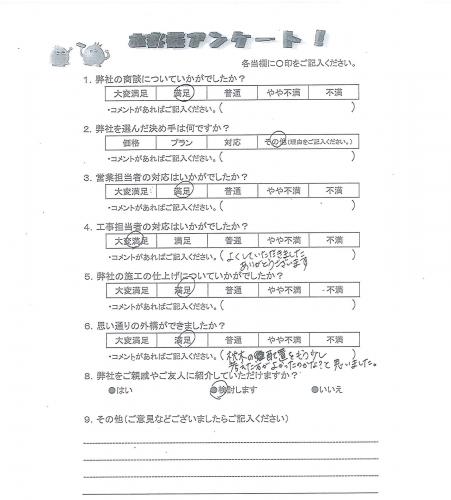 アンケート!
各当欄に○印をご記入ください。
1. 弊社の商談についていかがでしたか?
大変満足 満足 普通 やや不満 不満
・コメントがあればご記入ください。( )
2. 弊社を選んだ決め手は何ですか?
価格 プラン 対応 その他(理由をご記入ください。)
・コメントがあればご記入ください。( )
3. 営業担当者の対応はいかがでしたか?
大変満足 満足 普通 やや不満 不満
・コメントがあればご記入ください。( )
4. 工事担当者の対応はいかがでしたか?
大変満足 満足 普通 やや不満 不満
・コメントがあればご記入ください。(よくしていただきました
ありがとうございます )
5. 弊社の施工の仕上げについていかがでしたか?
大変満足 満足 普通 やや不満 不満
・コメントがあればご記入ください。( )
6. 思い通りの外構ができましたか?
大変満足 満足 普通 やや不満 不満
・コメントがあればご記入ください。( 配置をもう少し
考えた方がよかったのかな?と思いました。
8. 弊社をご親戚やご友人に紹介していただけますか?
●はい ●検討します ●いいえ
9. その他(ご意見などございましたらご記入ください)